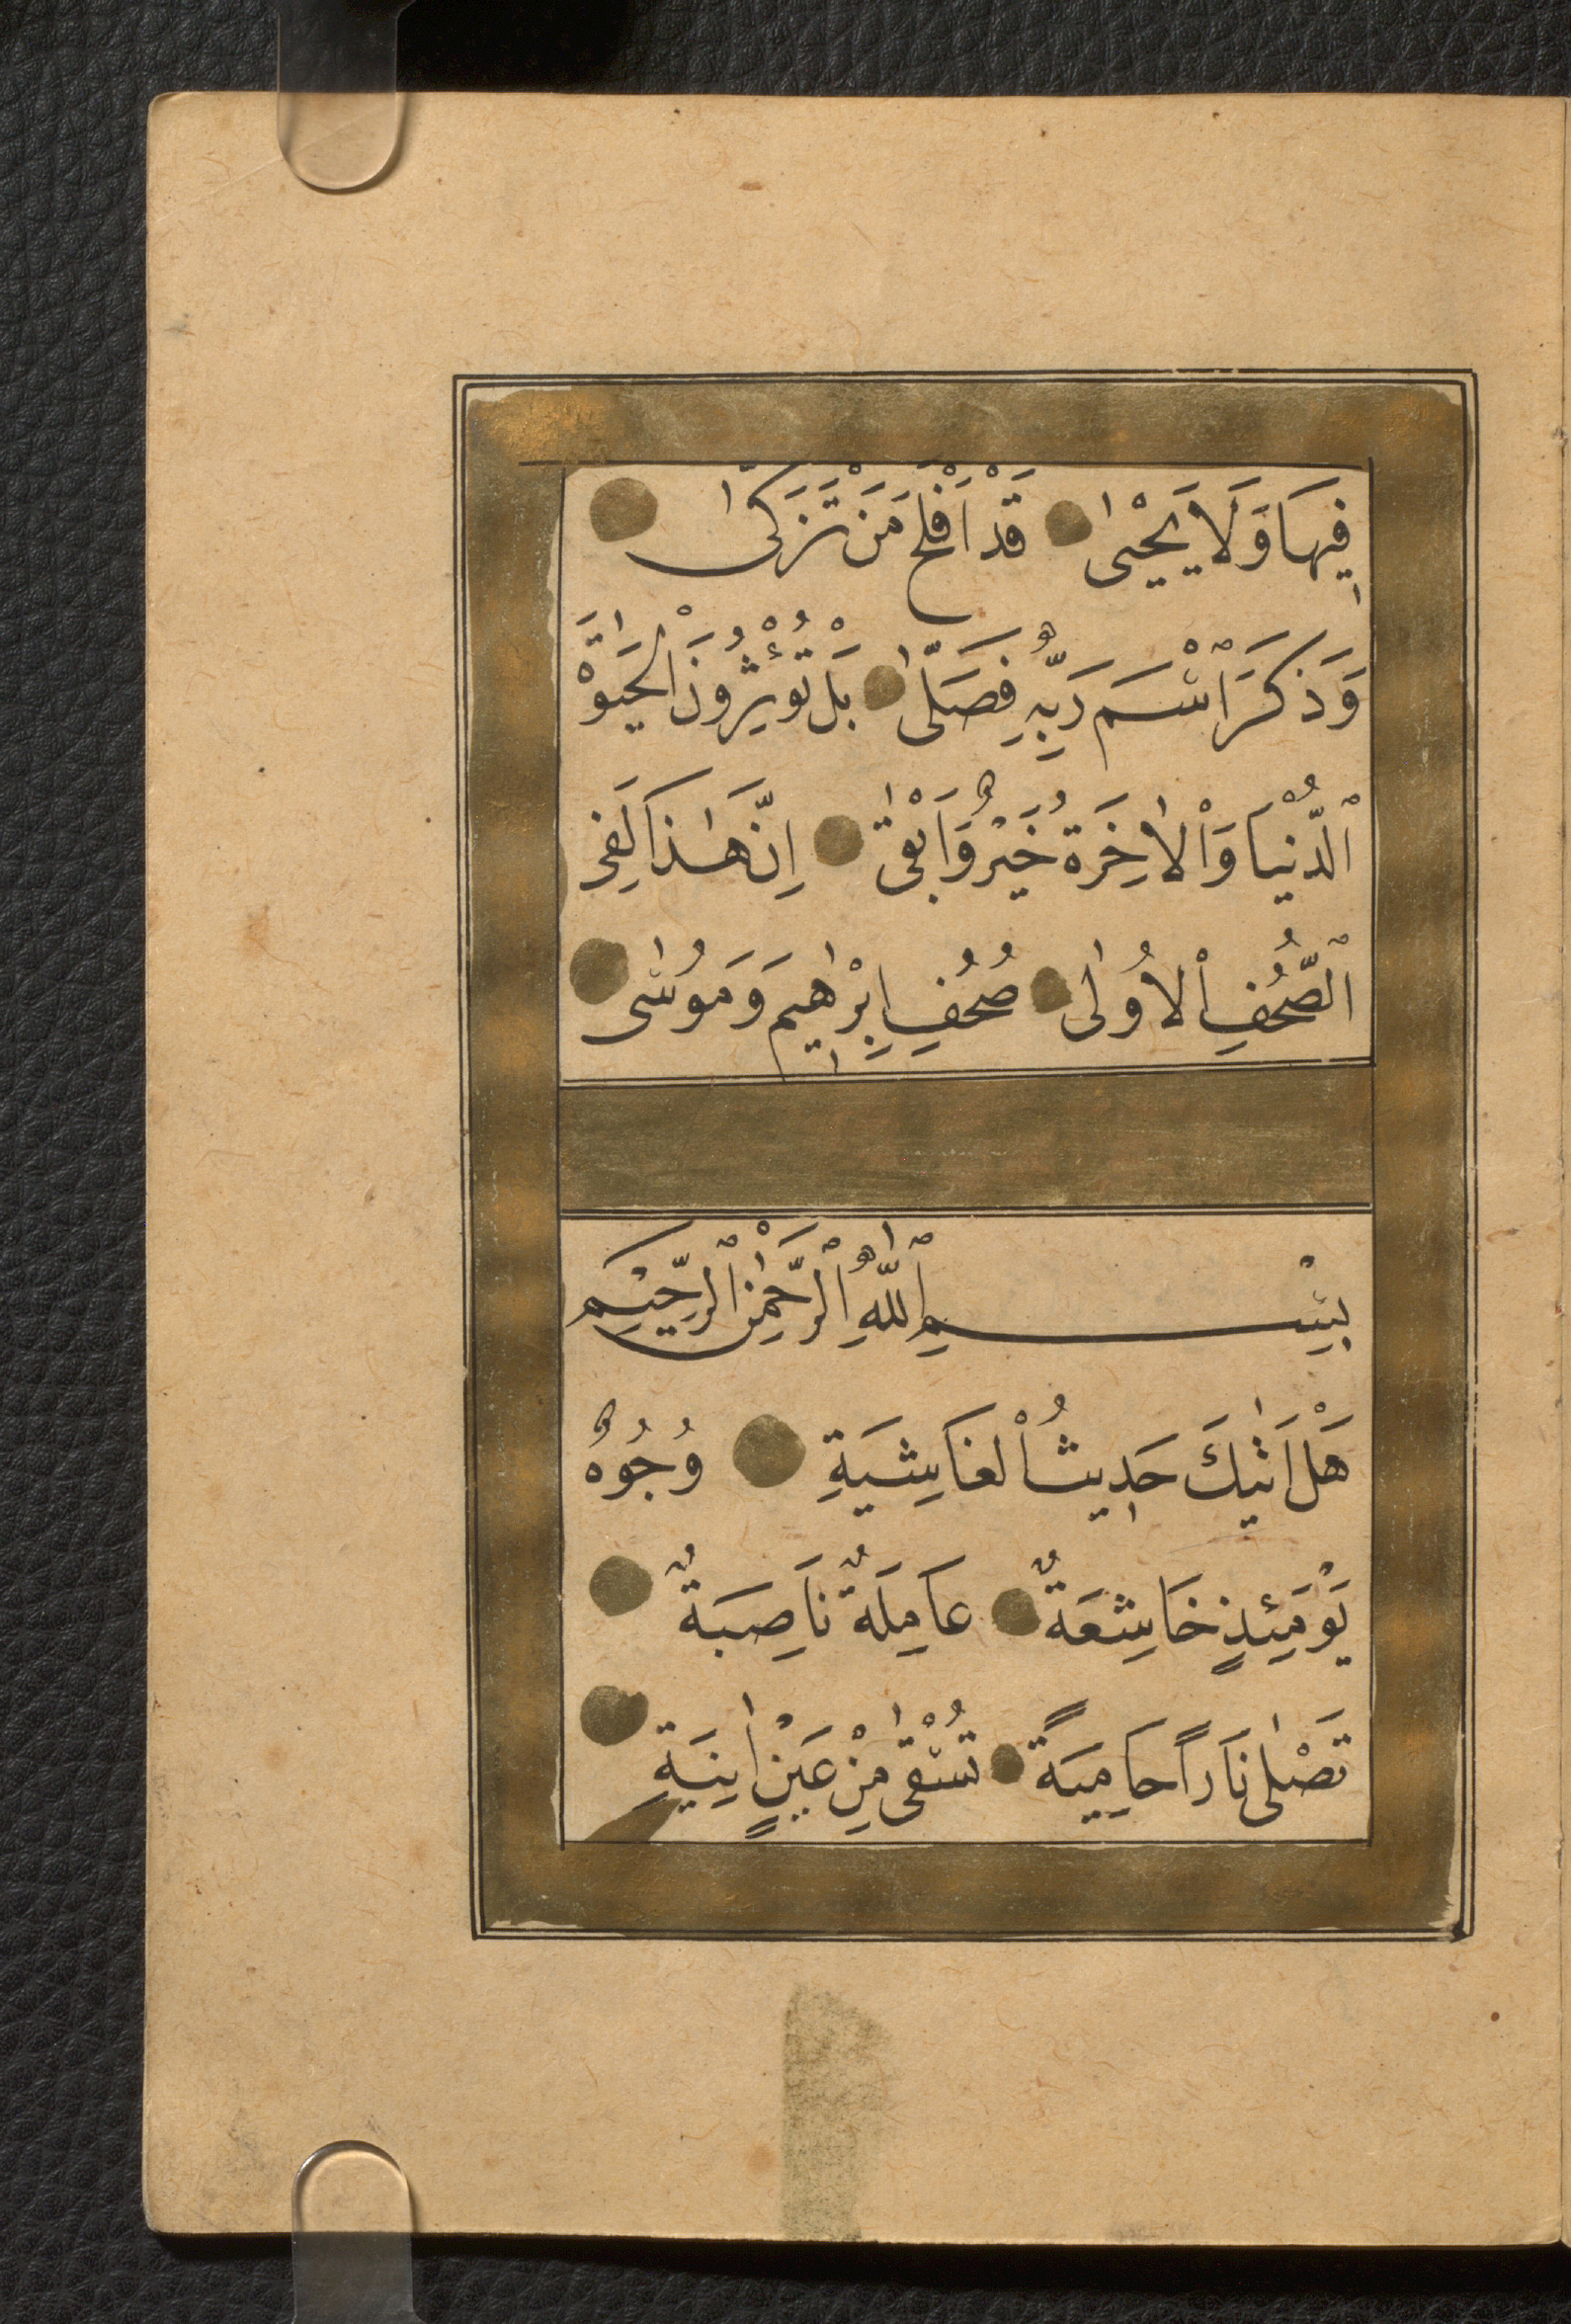 فِيهَا وَلَا يَحْيٰى قَدْ اَفْلَحَ مَنْ تَزَكّٰى
وَذَكَرَ اسْمَ رَبِّهِ فَصَلّٰى بَلْ تُؤْثِرُونَ الْحَيٰوةَ
ٱلدُّنْيَا وَاْلاٰخِرَةُ خَيْرٌ وَاَبْقٰى اِنَّ هٰذَا لَفِى
ٱلصُّحُفِ اْلاُولٰى صُحُفِ اِبْرٰهِيمَ وَمُوسٰى
بِسْمِ ٱللّٰهِ ٱلرَّحْمٰنِ ٱلرَّحِيْمِ
هَلْ اَتٰيكَ حَدِيثُ اْلغَاشِيَةِ وُجُوهٌ
يَوْمَئِذٍ خَاشِعَةٌ عَامِلَةٌ نَاصِبَةٌ
تَصْلٰى نَارًا حَامِيَةً تُسْقٰى مِنْ عَيْنٍ اٰنِيَةٍ